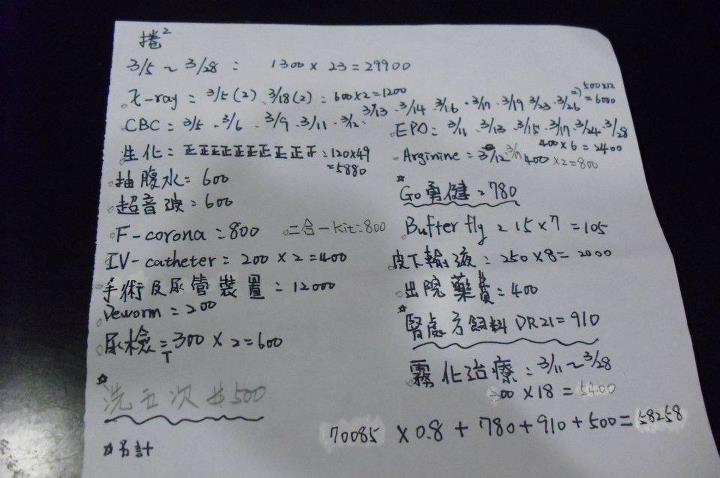 捲²
3/5 ~ 3/28 : 1300 x 23 = 29900
X-ray : 3/5 (2) 、3/18 (2) : 600 x 2 = 1200
CBC : 3/5 、3/6 、3/9 、3/11 、3/12 、3/13 、3/14 、3/16 、3/17 、3/19 3/23 、3/26 => 500x12 = 6000
生化 : 正正正正正正正正正正 : 120x49 = 5880
抽腹水 : 600
超音波 : 600
F-corona : 800 二合一 kit : 800
IV-catheter : 200 x 2 = 400
手術及尿管裝置 : 12000
Deworm = 200
尿檢 = 300 x 2 = 600
洗五次 $500
☆另計
EPO : 3/11 、3/13 、3/15 、3/17 、3/24 、3/28
400 x 6 = 2400
Arginine : 3/12 3/17 400 x 2 = 800
☆
Go勇健 : 780
Butterfly : 15 x 7 = 105
皮下輸液 : 250 x 8 = 2000
出院藥費 : 400
☆
腎處方飼料 DR21 = 910
霧化治療 : 3/11 ~ 3/28
300 x 18 = 5400
70085 x 0.8 + 780 + 910 + 500 = 58258